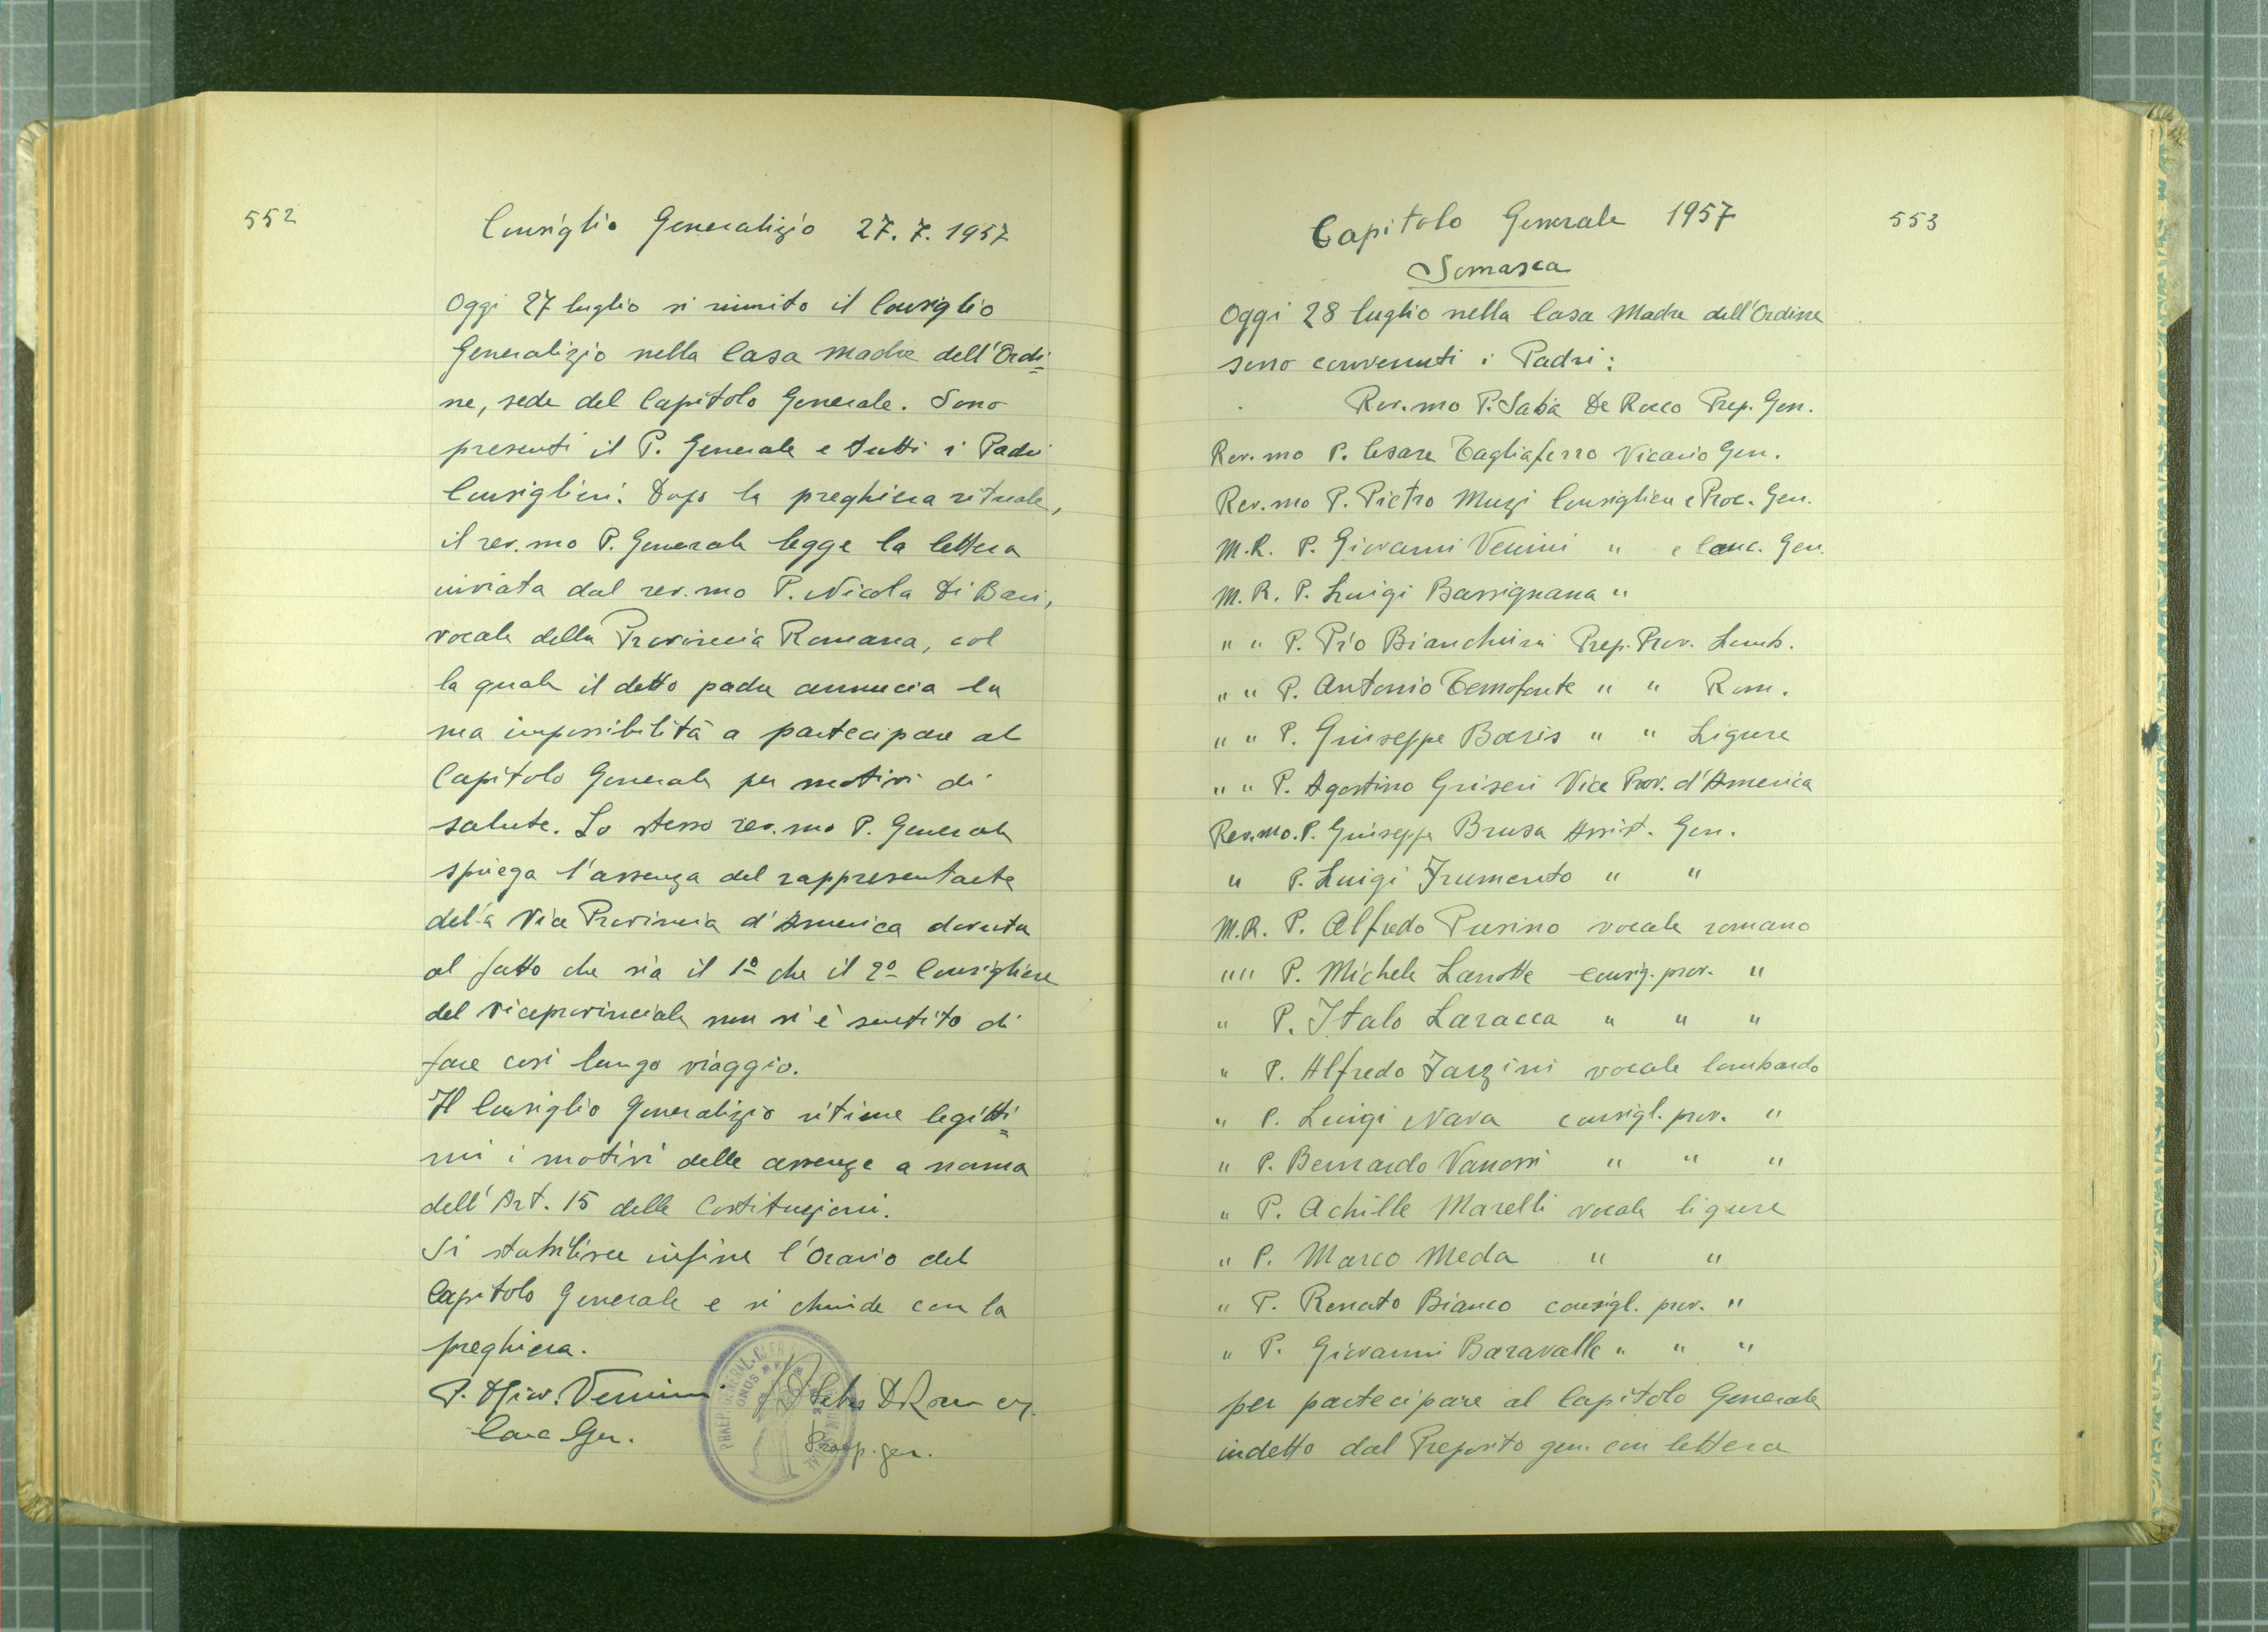 552
Consiglio Generalizio 27.7.1957
Oggi 27 luglio si riunito il Consiglio
Generalizio nella Casa Madre dell'Ordi=
ne, sede del Capitolo Generale. Sono
presenti il P. Generale e tutti i Padri
Consiglieri. Dopo la preghiera rituale,
il rev.mo P. Generale legge la lettera
inviata dal rev.mo P. Nicola Di Bari,
vocale della Provincia Romana, col
la quale il detto padre annuncia la
sua impossibilità a partecipare al
Capitolo Generale per motivi di
salute. Lo stesso rev.mo P. Generale
spiega l'assenza del rappresentante
della Vice Provincia d'America dovuta
al fatto che sia il 1º che il 2º Consigliere
del viceprovinciale non si è sentito di
fare così lungo viaggio.
Il Consiglio Generalizio ritiene legitti=
mi i motivi delle assenze a norma
dell'Art. 15 delle Costituzioni.
Si stabilisce infine l'Orario del
Capitolo Generale e si chiude con la
preghiera.
P. Giov. Venini P. Saba De Rocco
Canc. Gen. Praep. gen.
Capitolo Generale 1957
553
Somasca
Oggi 28 luglio nella Casa Madre dell'Ordine
sono convenuti i Padri:
Rev.mo P. Saba De Rocco Prep. Gen.
Rev.mo P. Cesare Tagliaferro Vicario Gen.
Rev.mo P. Pietro Muzi Consigliere e Proc. Gen.
M.R. P. Giovanni Venini " e Canc. Gen.
M.R. P. Luigi Bassignana "
" " P. Pio Bianchini Prep. Prov. Lomb.
" " P. Antonio Temofonte " " Rom.
" " P. Giuseppe Boeris " " Ligure
" " P. Agostino Griseri Vice Prov. d'America
Rev.mo. P. Giuseppe Brusa Assist. Gen.
" P. Luigi Frumento " "
M.R. P. Alfredo Pusino vocale romano
" " P. Michele Lanotte consig. prov. "
" P. Italo Laracca " " "
" P. Alfredo Fazzini vocale lombardo
" P. Luigi Nava consigl. prov. "
" P. Bernardo Vanossi " " "
" P. Achille Marelli vocale ligure
" P. Marco Meda " "
" P. Renato Bianco consigl. prov. "
" P. Giovanni Baravalle " " "
per partecipare al Capitolo Generale
indetto dal Preposito gen. con lettera